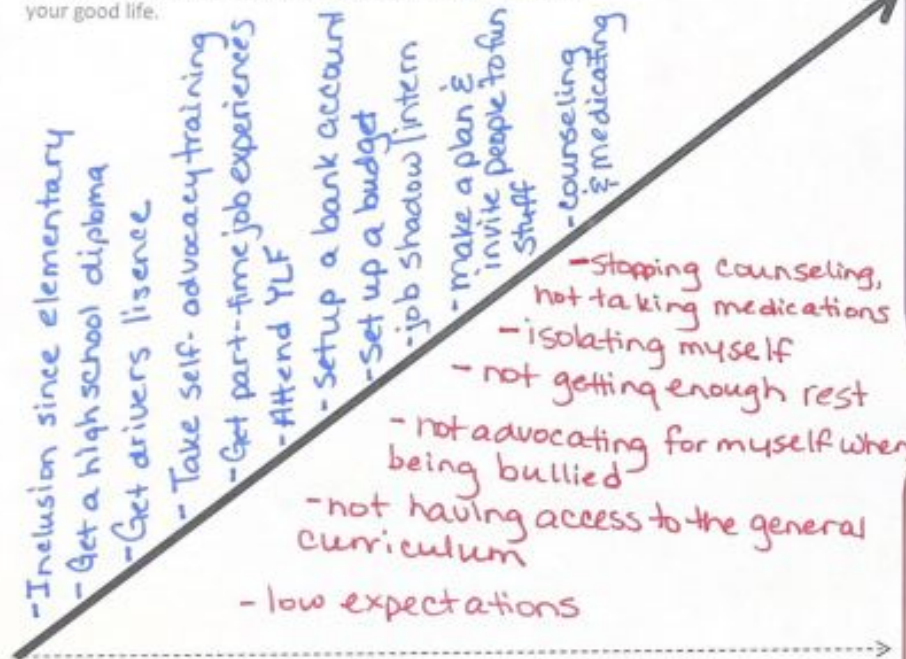 your good life.
-Inclusion since elementary
-Get a high school diploma
-Get drivers lisence
-Take self-advocacy training
-Get part-time job experiences
-Attend YLF
-setup a bank account
-set up a budget
-job shadow/intern
-make a plan &
invite people to fun
stuff
-counseling
& medicating
-stopping counseling,
not taking medications
-isolating myself
-not getting enough rest
-not advocating for myself when
being bullied
-not having access to the general
curriculum
-low expectations